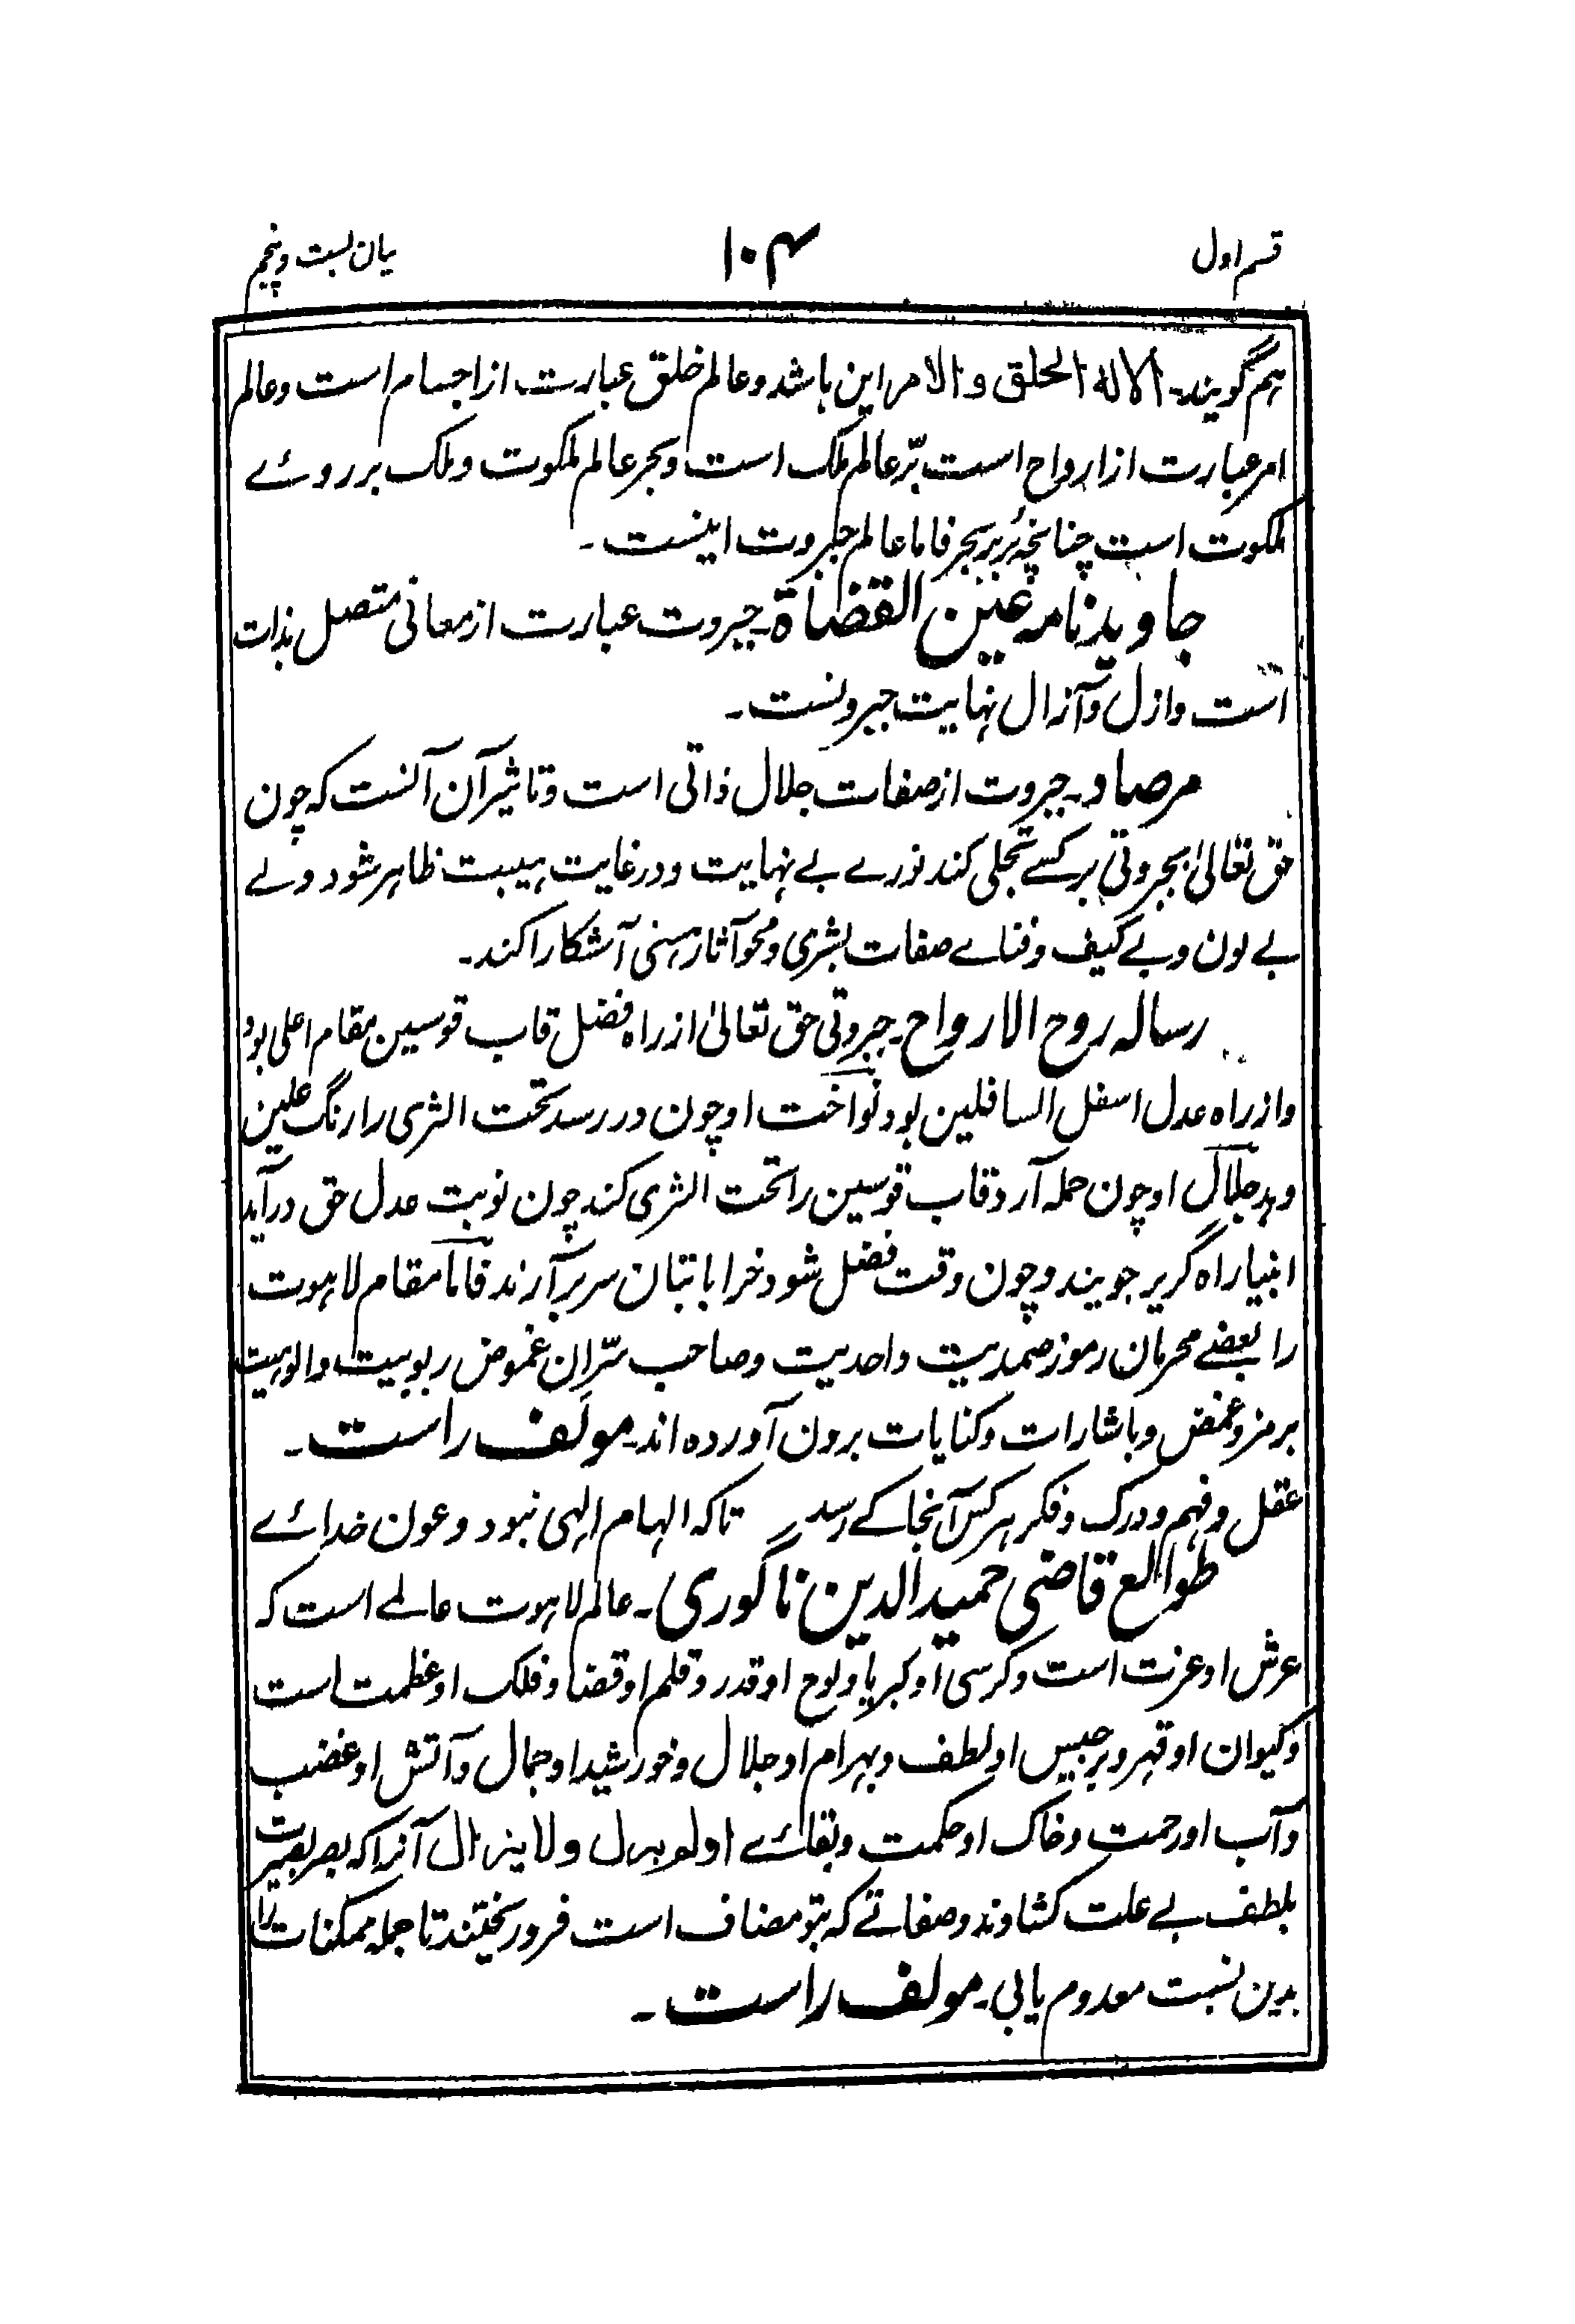 قسم اول ۱۰۴ بیان بست و پنجم
ہم گویند۔ الا له الخلق و الامر این باشد و عالم خلق عبارت از اجسام است و عالم
امر عبارت از ارواح است برّ عالم ملک است و بحر عالم ملکوت و ملک بر روئے
ملکوت است چنانچہ بر بر بحر فاما عالم جبروت اینست۔
جاوید نامہ عین القضاة۔ جبروت عبارت از معانی متصل بذات
است و ازل و آزال نہایت جبروتست۔
مرصاد۔ جبروت از صفات جلال ذاتی است و تاثیر آن آنست کہ چون
حق تعالیٰ بجبروتی بر کسے تجلی کند نورے بے نہایت و در غایت ہیبت ظاہر شود ولے
بے لون و بے کیف و فناے صفات بشری و محو آثار ہستی آشکارا کند۔
رسالہ روح الارواح۔ جبروتی حق تعالیٰ از راہ فضل قاب قوسین مقام اعلی بود
و از راہ عدل اسفل السافلین بود نواخت او چون در رسد تحت الثری را رنگ علین
دہد جلال او چون حملہ آرد قاب قوسین را تحت الثری کند چون نوبت عدل حق درآید
انبیا راہ گریز جویند و چون وقت فضل شود خراباتیان سر برآرند فاما مقام لاہوت
را بعضے محرمان رموز صمدیت و احدیت و صاحب سرّان غموض ربوبیت و الوہیت
برمز و غمض و باشارات و کنایات برون آورده اند۔ مولف راست۔
عقل و فہم و درک و فکر ہر کس آنجا کے رسد تا کہ الہام الہی نبود و عون خدائے
طوالع قاضی حمید الدین ناگوری۔ عالم لاہوت عالمے است کہ
عرش او عزت است و کرسی او کبریا و لوح او قدر و قلم او قضا و فلک او عظمت است
و کیوان او قہر و برجیس او لطف و بہرام او جلال و خورشید او جمال و آتش او غضب
و آب او رحمت و خاک او حکمت و بقائے او لم یزل و لا یزال آنرا کہ بصر بصیرت
بلطف بے علت کشاوند و صفاتے کہ بتو مضاف است فرو ریختند تا جملہ ممکنات را
بدین نسبت معدوم یابی۔ مولف راست۔